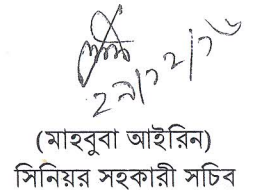 ২৯/১২/১৬
(মাহবুবা আইরিন)
সিনিয়র সহকারী সচিব